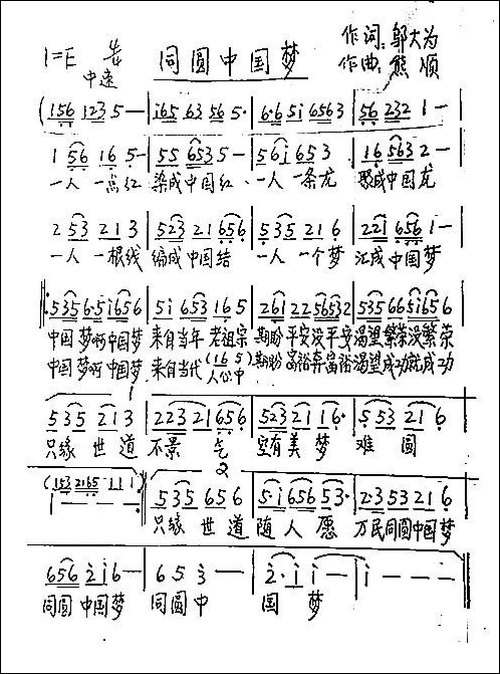 同圆中国梦
作词:邬大为
作曲:熊顺
1=E
中速
(156 123 5— | i65 63 56 5· | 6·6 5i 6563 | 56 232 1— |
1 56 16 5— | 55 653 5— | 56i 65 3 | 16 563 2— |
一人 一点红 染成中国红 一人 一条龙 聚成中国龙
2 53 221 3 | 523 21 656 | 535 221 6 | 221 656 1— |
一人 一根线 编成中国结 一人 一个梦 汇成中国梦
5356·5i656 | 5i 653 16 5 | 261 22 56532 | 535 665i656 |
中国梦啊中国梦 来自当年 老祖宗 期盼平安没平安渴望繁荣没繁荣
中国梦啊中国梦 来自当代 (16 5) 人心中 期盼富裕奔富裕渴望成功就成功
535 221 3 | 223 21 656 | 523 21 16· | 553 21 6 |
只缘 世道 不景 气 空有美梦 难 圆
1
2
(153 2165 111)
1———
535 656 | 5·i 656 53· | 2·3 53 21 6 |
只缘 世道 随人愿 万民同圆中国梦
656 2i6— | 65 3— | 2·i i— | i——— ||
同圆 中国梦 同圆 中 国 梦